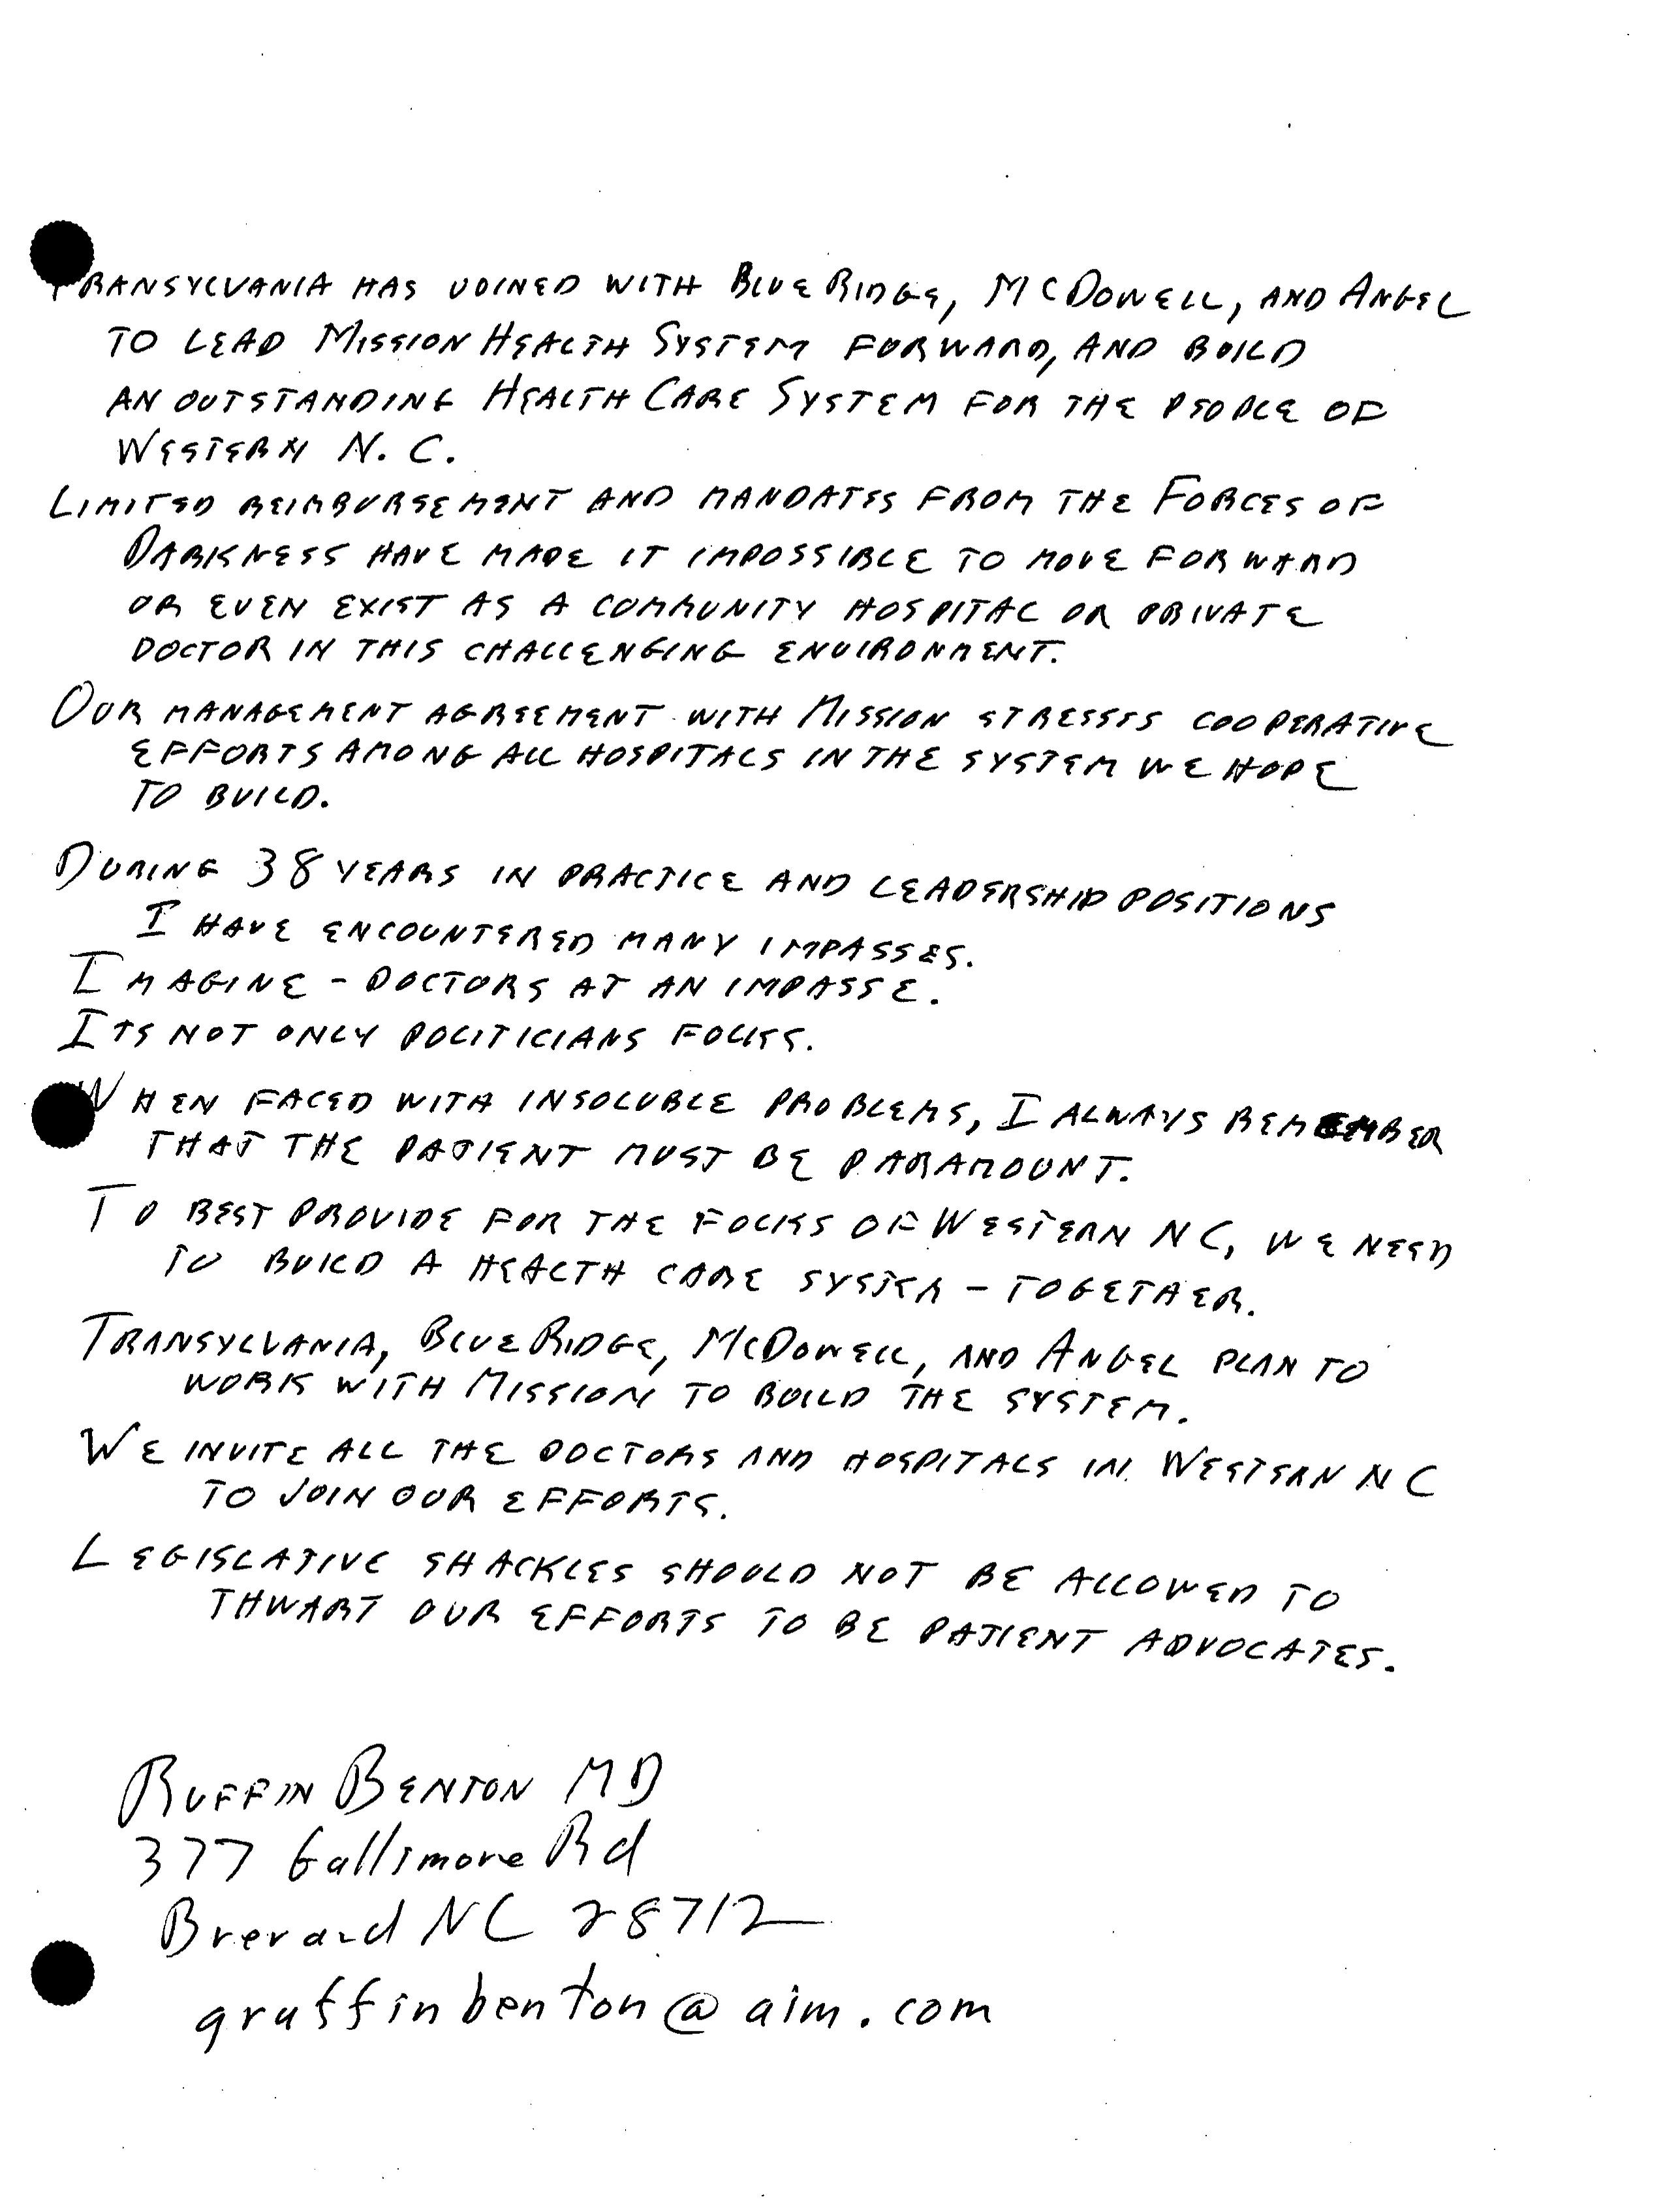 TRANSYLVANIA HAS JOINED WITH BLUE RIDGE, MCDOWELL, AND ANGEL
TO LEAD MISSION HEALTH SYSTEM FORWARD, AND BUILD
AN OUTSTANDING HEALTH CARE SYSTEM FOR THE PEOPLE OF
WESTERN N. C.
LIMITED REIMBURSEMENT AND MANDATES FROM THE FORCES OF
DARKNESS HAVE MADE IT IMPOSSIBLE TO MOVE FORWARD
OR EVEN EXIST AS A COMMUNITY HOSPITAL OR PRIVATE
DOCTOR IN THIS CHALLENGING ENVIRONMENT.
OUR MANAGEMENT AGREEMENT WITH MISSION STRESSES COOPERATIVE
EFFORTS AMONG ALL HOSPITALS IN THE SYSTEM WE HOPE
TO BUILD.
DURING 38 YEARS IN PRACTICE AND LEADERSHIP POSITIONS
I HAVE ENCOUNTERED MANY IMPASSES.
IMAGINE - DOCTORS AT AN IMPASSE.
ITS NOT ONLY POLITICIANS FOLKS.
WHEN FACED WITH INSOLUBLE PROBLEMS, I ALWAYS REMEMBER
THAT THE PATIENT MUST BE PARAMOUNT.
TO BEST PROVIDE FOR THE FOLKS OF WESTERN NC, WE NEED
TO BUILD A HEALTH CARE SYSTEM - TOGETHER.
TRANSYLVANIA, BLUE RIDGE, MCDOWELL, AND ANGEL PLAN TO
WORK WITH MISSION TO BUILD THE SYSTEM.
WE INVITE ALL THE DOCTORS AND HOSPITALS IN WESTERN NC
TO JOIN OUR EFFORTS.
LEGISLATIVE SHACKLES SHOULD NOT BE ALLOWED TO
THWART OUR EFFORTS TO BE PATIENT ADVOCATES.
RUFFIN BENTON MD
377 Gallimore Rd
Brevard NC 28712
gruffinbenton@aim.com